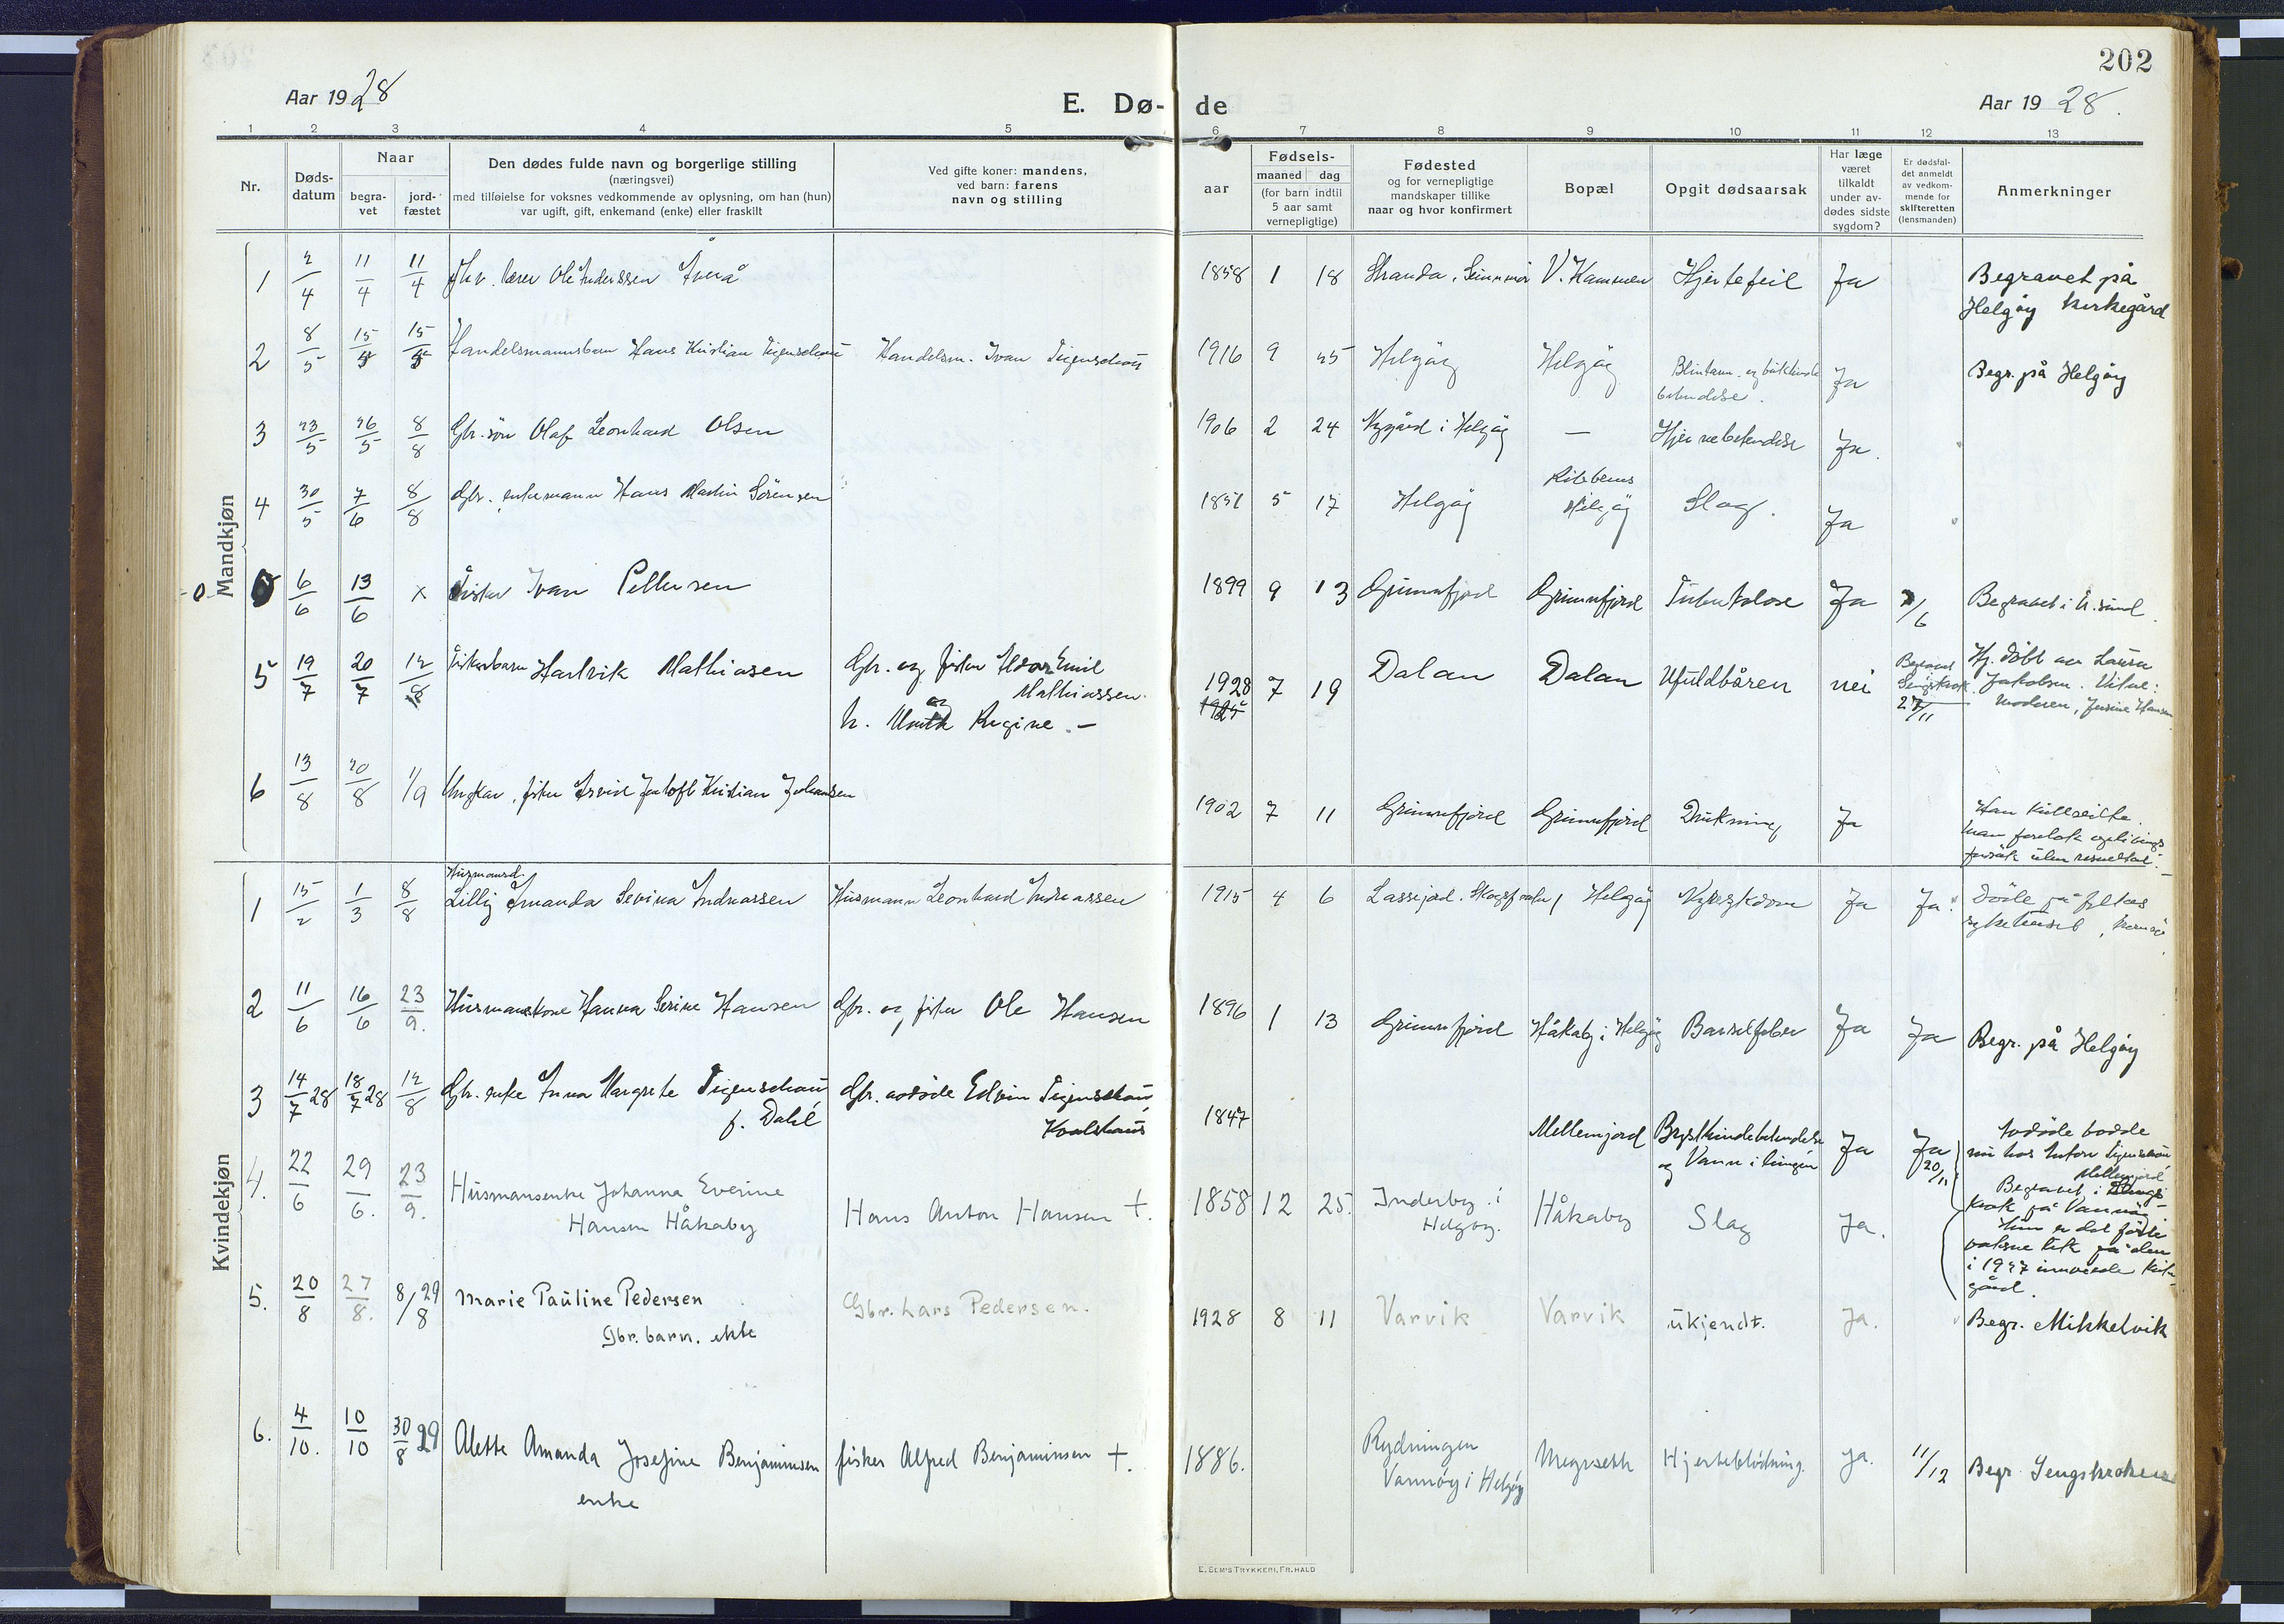 202
Aar 1928
E. Dø-
de
Aar 1928.
1 2 3 4 5
6 7 8 9 10 11 12 13
Nr.
Døds-
datum
Naar
begra-
vet
jord-
fæstet
Den dødes fulde navn og borgerlige stilling
(næringsvei)
med tilføielse for voksnes vedkommende av oplysning, om han (hun)
var ugift, gift, enkemand (enke) eller fraskilt
Ved gifte koner: mandens,
ved barn: farens
navn og stilling
aar
Fødsels-
maaned dag
(for barn indtil
5 aar samt
vernepligtige)
Fødested
og for vernepligtige
mandskaper tillike
naar og hvor konfirmert
Bopæl
Opgit dødsaarsak
Har læge
været
tilkaldt
under av-
dødes sidste
sygdom?
Er dødsfal-
det anmeldt
av vedkom-
mende for
skifteretten
(lensmanden)
Anmerkninger
Mandkjøn
1 2/4 11/4 11/4 fhv. lærer Ole Anderssen Åmå 1858 1 18 Stranda, V. Kammen Hjertefeil Ja Begravet på
Helgøy kirkegård
2 8/5 15/5 15/5 Handelsmannsbarn Hans Kristian Figenschou Handelsm. Ivan Figenschou 1916 9 25 Helgøy Helgøy Blintarm- og
betendelse. Ja Begr. på Helgøy
3 23/5 26/5 8/8 Gbr. søn Olaf Leonhard Olsen 1906 2 24 Nygård i Helgøy — Hjernebetendelse Ja.
4 30/5 7/6 8/8 Gbr. enkemann Hans Martin Sørensen 1851 5 17 Helgøy
Helgøy Slag. Ja
-0- 6/6 13/6 x Fisker Ivan Pettersen 1899 9 13 Grunnfjord Grunnfjord Tuberkulose Ja /6 Begravet i
5 19/7 20/7 12/8 Fiskerbarn Hartvik Mathiasen Gbr. og fisker Edvar Emil
Mathiassen
h. Regine. –
1928
1925 7 19 Dalan Dalan Ufuldbåren nei Begravet
27/11
Hj. døbt av Laura
Jakobsen. Vitne:
moderen, Hansen
6 13/8 20/8 1/9 Ungkar, fisker Arvid Kristian Johansen 1902 7 11 Grunnfjord Grunnfjord Drukning Ja Han kullseilte.
man foretok
forsøk uten resultat. –
Kvindekjøn
1 15/2 1/3 8/8 Husmannsd.
Lilly Amanda Sevina Andreassen Husmann Leonhard Andreassen 1915 4 6 Lassejord. Skogsfjorden, Helgøy Nyresykdom Ja Ja. Døde på
sykehuset,
2 11/6 16/6 23/9. Husmanskone Hanna Serine Hansen Gbr. og fisker Ole Hansen 1896 1 13 Grunnfjord Håkaby i Helgøy Barselfeber Ja Ja Begr. på Helgøy
3 14/7 28 18/7 28 12/8 Gbr. enke Anna Margrete Figenschou
f. Dahl Gbr. avdøde Edvin Figenschou
Kvalshaus 1847 Mellemjord Brysthindebetendelse
og Vann i lungen Ja Ja
20/11 Avdøde bodde
nu hos Anton Figenschou
Mellemjord
Begravet i
krok på Vannøy
Hun er det første
voksne lik på den
i 1927 innviede kirke-
gård.
4. 22/6 29/6. 23/9. Husmansenke Johanna Everine
Hansen Håkaby Hans Anton Hansen +. 1858 12 25. Inderby i
Helgøy. Håkaby Slag Ja.
5. 20/8 27/8. 8/8 29 Marie Pauline Pedersen
Gbr. barn. ekte Gbr. Lars Pedersen. 1928 8 11 Varvik Varvik ukjendt. Ja. Begr. Mikkelvik
6. 4/10. 10/10 30/8 29 Alette Amanda Josefine Benjaminsen
enke fisker Alfred Benjaminsen +. 1886. Rydningen
Vannøy i Helgøy Hjerteblødning. Ja. 11/12 Begr. Sengskroken
E. Sem's Trykkeri, Fr.hald